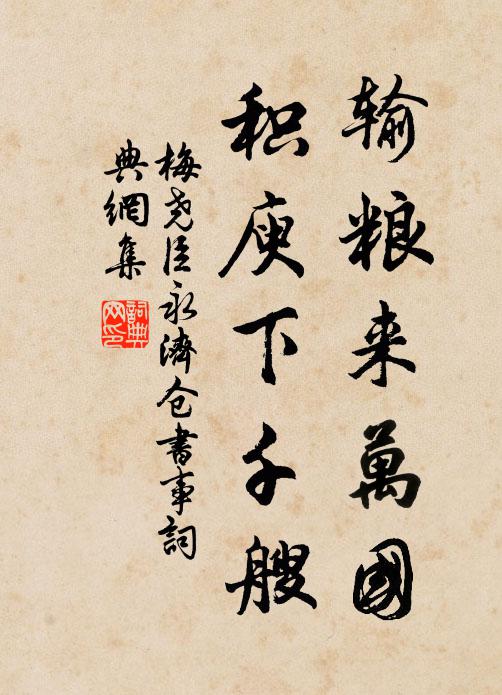 输粮来萬國
积庾下千艘
梅尧臣永濟仓書事詞
典網集
詞典
网印